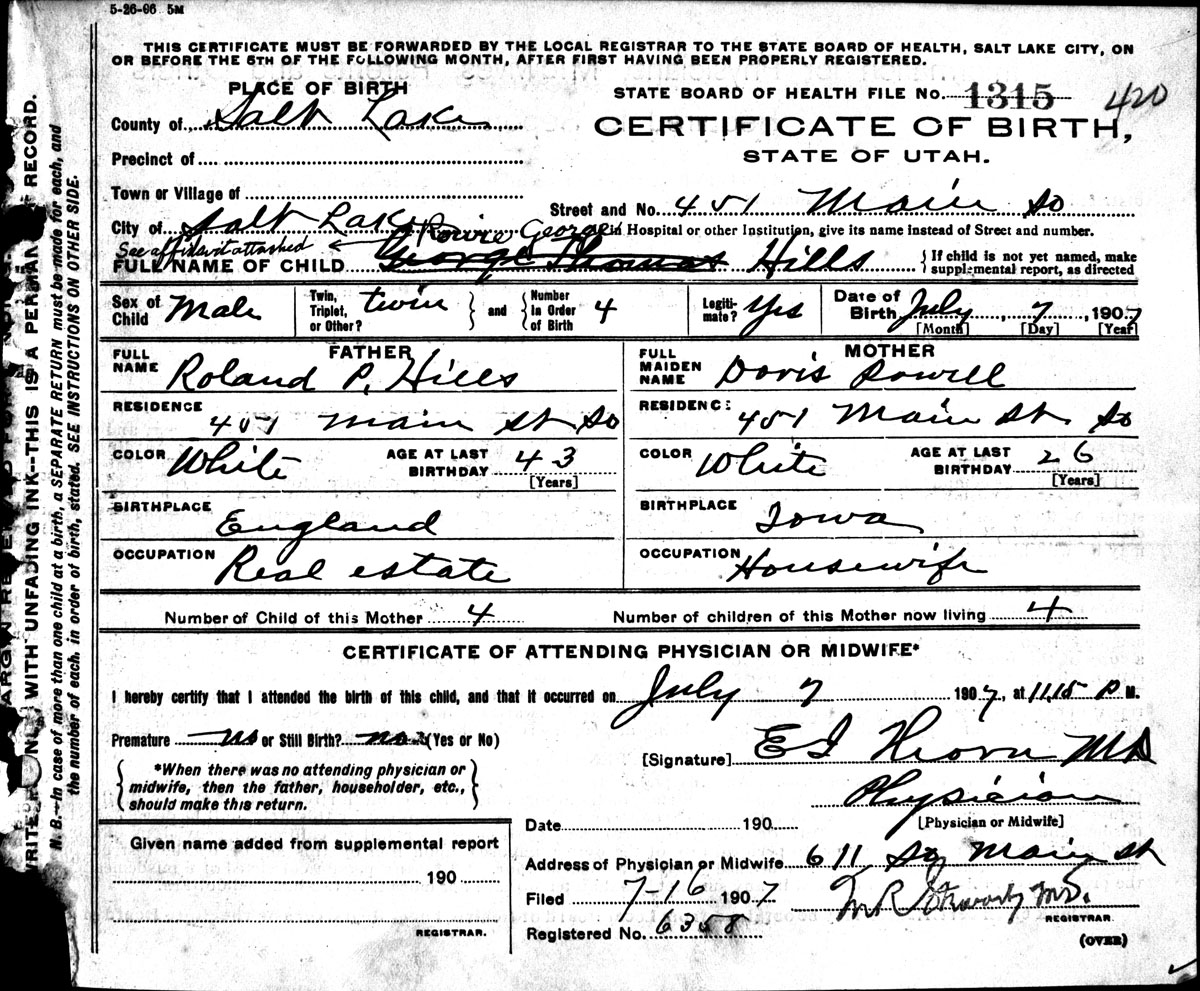 5-26-06 5M
THIS CERTIFICATE MUST BE FORWARDED BY THE LOCAL REGISTRAR TO THE STATE BOARD OF HEALTH, SALT LAKE CITY, ON
OR BEFORE THE 5TH OF THE FOLLOWING MONTH, AFTER FIRST HAVING BEEN PROPERLY REGISTERED.
PLACE OF BIRTH
STATE BOARD OF HEALTH FILE No. 1315 420
County of Salt Lake
CERTIFICATE OF BIRTH,
Precinct of
STATE OF UTAH.
Town or Village of
Street and No. 451 Main So
City of Salt Lake
Hospital or other Institution, give its name instead of Street and number.
See affidavit attached George
FULL NAME OF CHILD George Thomas Hills
If child is not yet named, make
supplemental report, as directed
Sex of Child Male
Twin, Triplet, or Other? twin
and
Number in Order of Birth 4
Legiti-mate? Yes
Date of Birth July 7, 1907
[Month] [Day] [Year]
FATHER
FULL NAME Roland P. Hills
RESIDENCE 451 Main St So
COLOR White
AGE AT LAST BIRTHDAY 43
[Years]
BIRTHPLACE England
OCCUPATION Real estate
MOTHER
FULL MAIDEN NAME Davis Powell
RESIDENCE 451 Main St So
COLOR White
AGE AT LAST BIRTHDAY 26
[Years]
BIRTHPLACE Iowa
OCCUPATION Housewife
Number of Child of this Mother 4
Number of children of this Mother now living 4
CERTIFICATE OF ATTENDING PHYSICIAN OR MIDWIFE*
I hereby certify that I attended the birth of this child, and that it occurred on July 7 1907, at 11,15 P M.
Premature no or Still Birth? no (Yes or No)
[Signature] E I MD
*When there was no attending physician or
midwife, then the father, householder, etc.,
should make this return.
Physician
[Physician or Midwife]
Date 190
Given name added from supplemental report
190
REGISTRAR.
Address of Physician or Midwife 611 So Main St
Filed 7-16 1907
M.D.
REGISTRAR.
Registered No. 6358
(OVER)
WITH UNFADING INK--THIS IS A RECORD.
N. B.--In case of more than one child at a birth, a SEPARATE RETURN must be made for each, and
the number of each, in order of birth, stated. SEE INSTRUCTIONS ON OTHER SIDE.